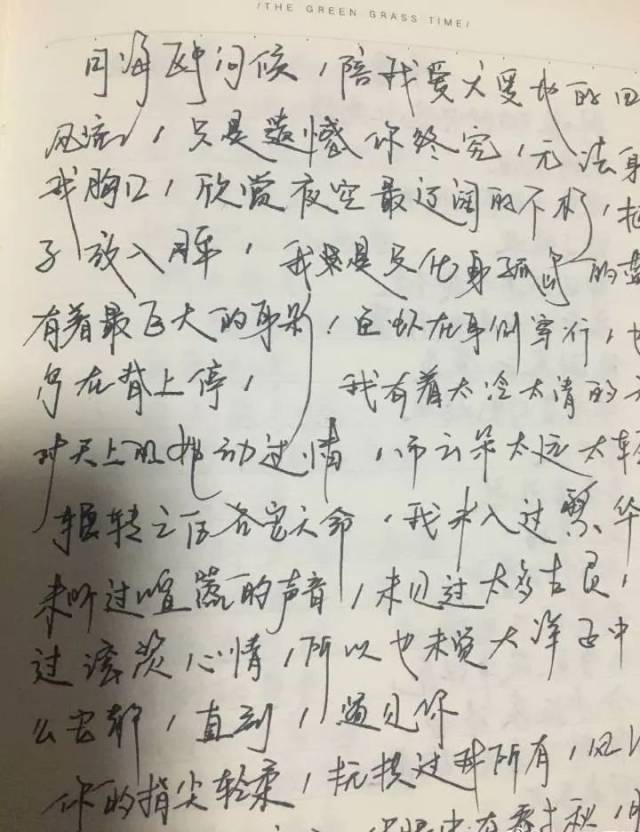 /THE GREEN GRASS TIME/
同海 问候，陪我爱天爱地的四
风流，只是遗憾你终究，无法身
我胸口，欣赏夜空最辽阔的不朽，把
子放入眼眸，我 是只化身孤岛的蓝
有着最巨大的身影，鱼虾在身侧穿行，也
鸟在背上停，我有着太冷太清的天
对天上的她动过情，而云朵太远太轻
辗转之后各安天命，我未入过繁华
未听过喧嚣的声音，未见过太多 ，
过滚烫心情，所以也未觉大洋正中
么安静，直到，遇见你
你的指尖轻柔，抚摸过我所有，风